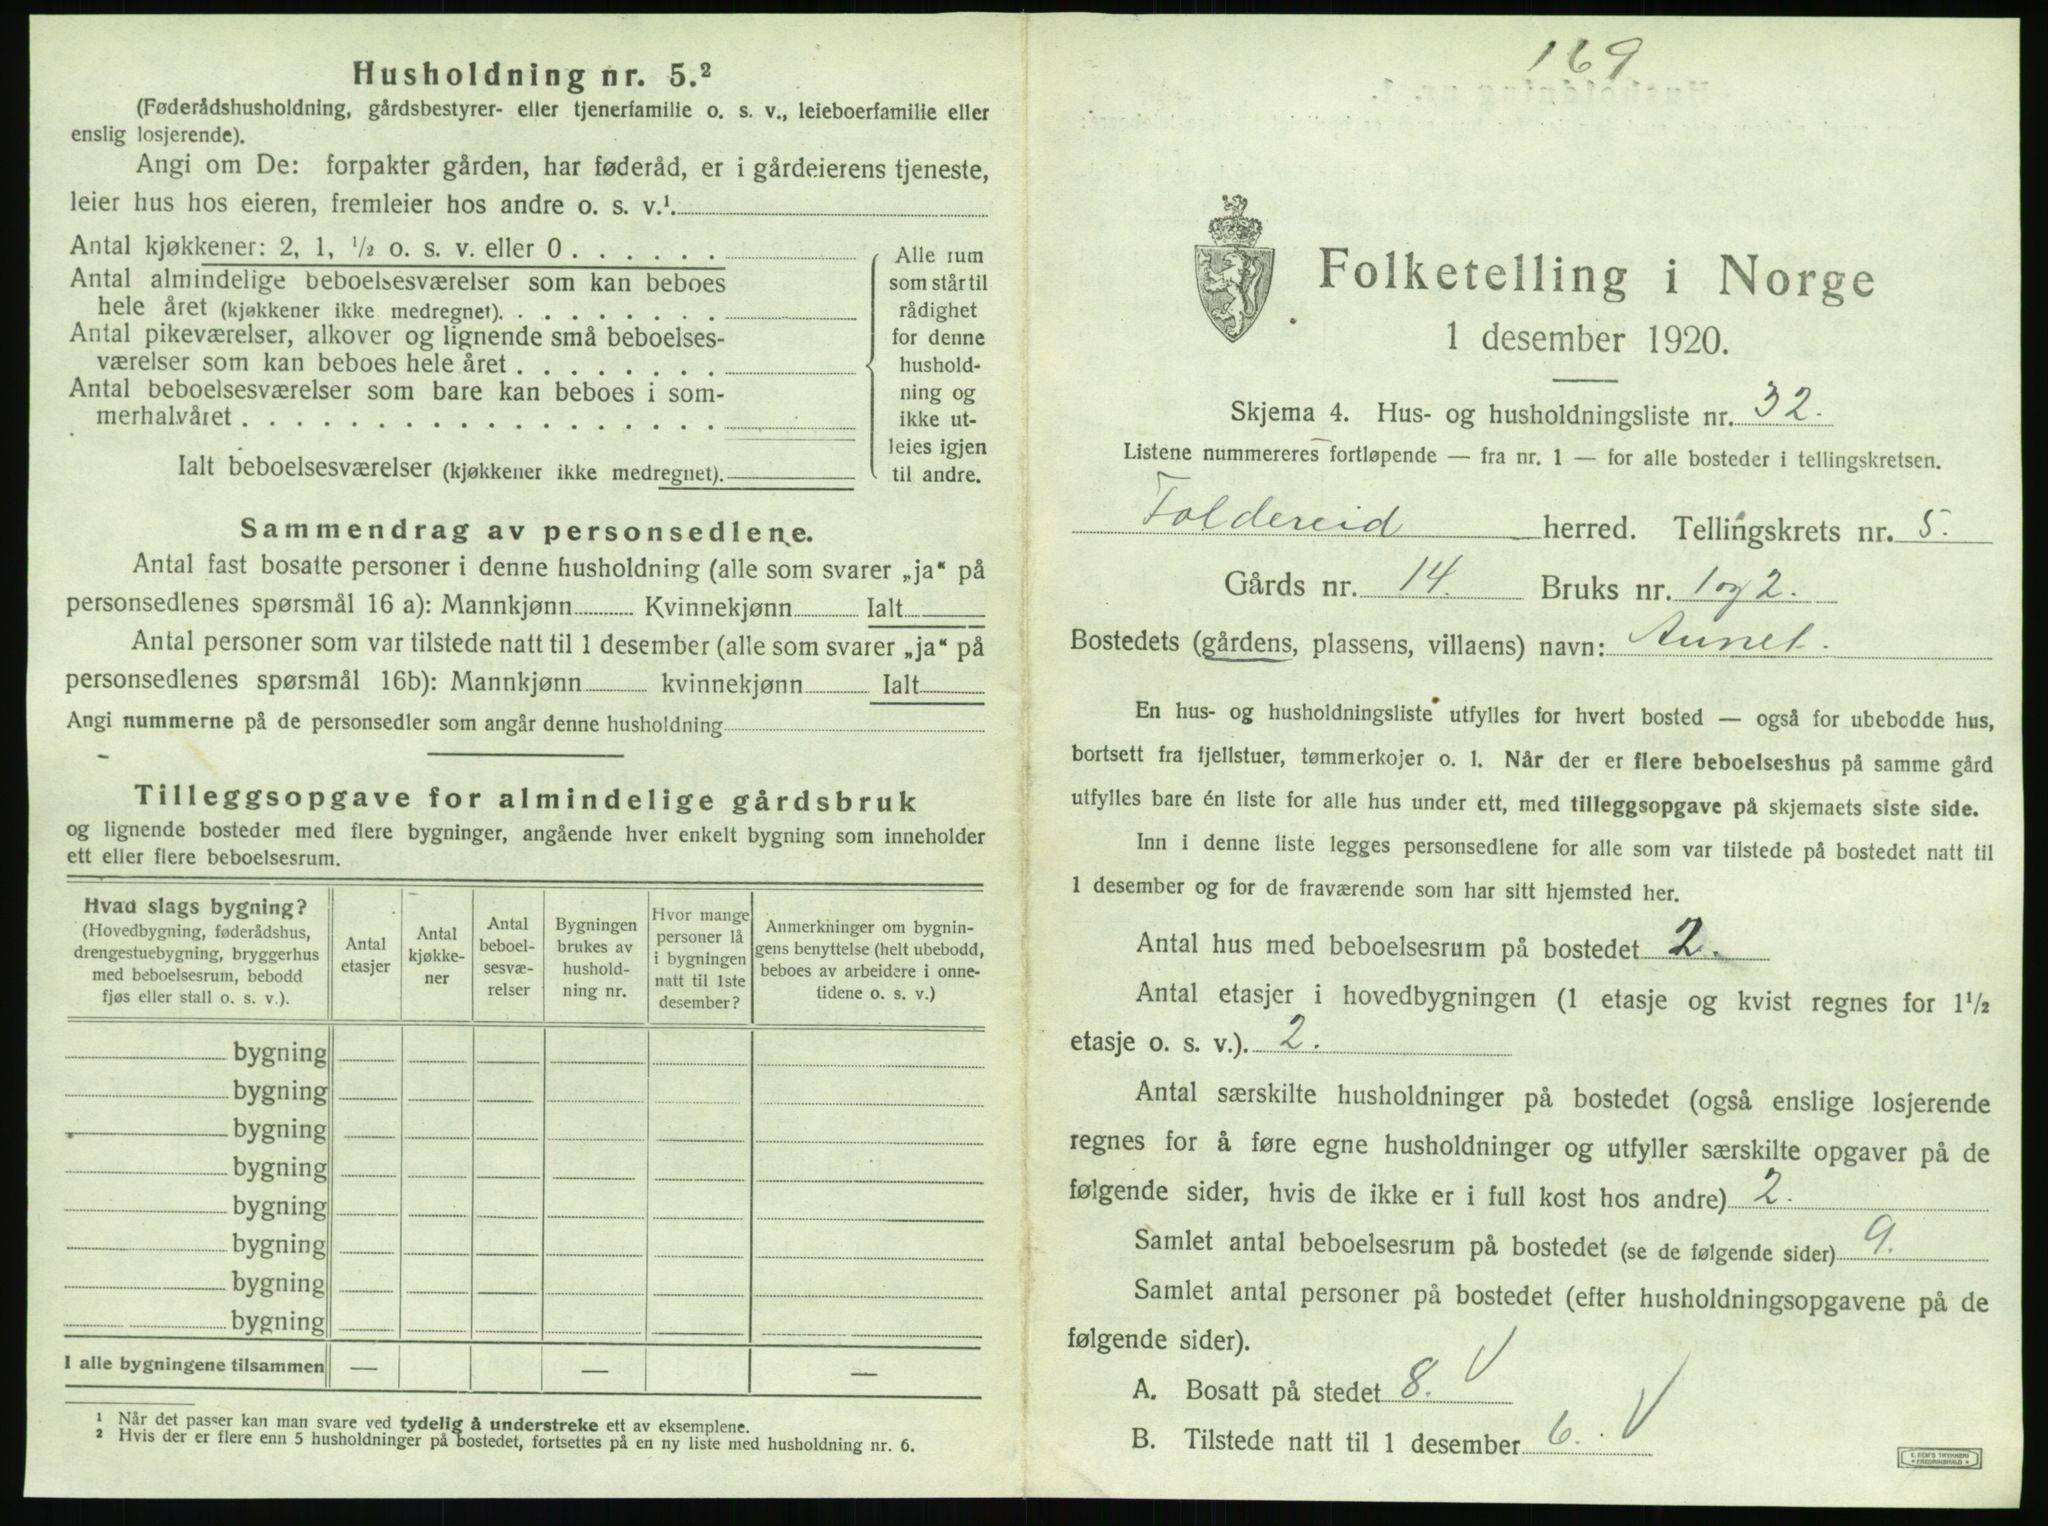 Husholdning nr. 5.²
(Føderådshusholdning, gårdsbestyrer- eller tjenerfamilie o. s. v., leieboerfamilie eller
enslig losjerende).
Angi om De: forpakter gården, har føderåd, er i gårdeierens tjeneste,
leier hus hos eieren, fremleier hos andre o. s. v.¹.
Antal kjøkkener: 2, 1, ¹/₂ o. s. v. eller 0 . . . . . .
Antal almindelige beboelsesværelser som kan beboes
hele året (kjøkkener ikke medregnet). . . . . . . . .
Antal pikeværelser, alkover og lignende små beboelses-
værelser som kan beboes hele året . . . . . . . .
Antal beboelsesværelser som bare kan beboes i som-
merhalvåret . . . . . . . . . . . . . . . . . .
Ialt beboelsesværelser (kjøkkener ikke medregnet).
Alle rum
som står til
rådighet
for denne
hushold-
ning og
ikke ut-
leies igjen
til andre.
Sammendrag av personsedlene.
Antal fast bosatte personer i denne husholdning (alle som svarer „ja“ på
personsedlenes spørsmål 16 a): Mannkjønn Kvinnekjønn Ialt
Antal personer som var tilstede natt til 1 desember (alle som svarer „ja“ på
personsedlenes spørsmål 16b): Mannkjønn kvinnekjønn Ialt
Angi nummerne på de personsedler som angår denne husholdning
Tilleggsopgave for almindelige gårdsbruk
og lignende bosteder med flere bygninger, angående hver enkelt bygning som inneholder
ett eller flere beboelsesrum.
Hvad slags bygning?
(Hovedbygning, føderådshus,
drengestuebygning, bryggerhus
med beboelsesrum, bebodd
fjøs eller stall o. s. v.).
Antal
etasjer
Antal
kjøkke-
ner
Antal
beboel-
sesvæ-
relser
Bygningen
brukes av
hushold-
ning nr.
Hvor mange
personer lå
i bygningen
natt til 1ste
desember?
Anmerkninger om bygnin-
gens benyttelse (helt ubebodd,
beboes av arbeidere i onne-
tidene o. s. v.)
bygning
bygning
bygning
bygning
bygning
bygning
bygning
bygning
I alle bygningene tilsammen — — —
¹ Når det passer kan man svare ved tydelig å understreke ett av eksemplene.
² Hvis der er flere enn 5 husholdninger på bostedet, fortsettes på en ny liste med husholdning nr. 6.
169
Folketelling i Norge
1 desember 1920.
Skjema 4. Hus- og husholdningsliste nr. 32.
Listene nummereres fortløpende — fra nr. 1 — for alle bosteder i tellingskretsen.
Foldereid herred. Tellingskrets nr. 5.
Gårds nr. 14. Bruks nr. 1 og 2.
Bostedets (gårdens, plassens, villaens) navn: Aunet.
En hus- og husholdningsliste utfylles for hvert bosted — også for ubebodde hus,
bortsett fra fjellstuer, tømmerkojer o. l. Når der er flere beboelseshus på samme gård
utfylles bare én liste for alle hus under ett, med tilleggsopgave på skjemaets siste side.
Inn i denne liste legges personsedlene for alle som var tilstede på bostedet natt til
1 desember og for de fraværende som har sitt hjemsted her.
Antal hus med beboelsesrum på bostedet 2.
Antal etasjer i hovedbygningen (1 etasje og kvist regnes for 1¹/₂
etasje o. s. v.). 2.
Antal særskilte husholdninger på bostedet (også enslige losjerende
regnes for å føre egne husholdninger og utfyller særskilte opgaver på de
følgende sider, hvis de ikke er i full kost hos andre) 2.
Samlet antal beboelsesrum på bostedet (se de følgende sider) 9.
Samlet antal personer på bostedet (efter husholdningsopgavene på de
følgende sider).
A. Bosatt på stedet 8. √
B. Tilstede natt til 1 desember 6. √
E. SEM'S TRYKKERI
FREDRIKSHALD